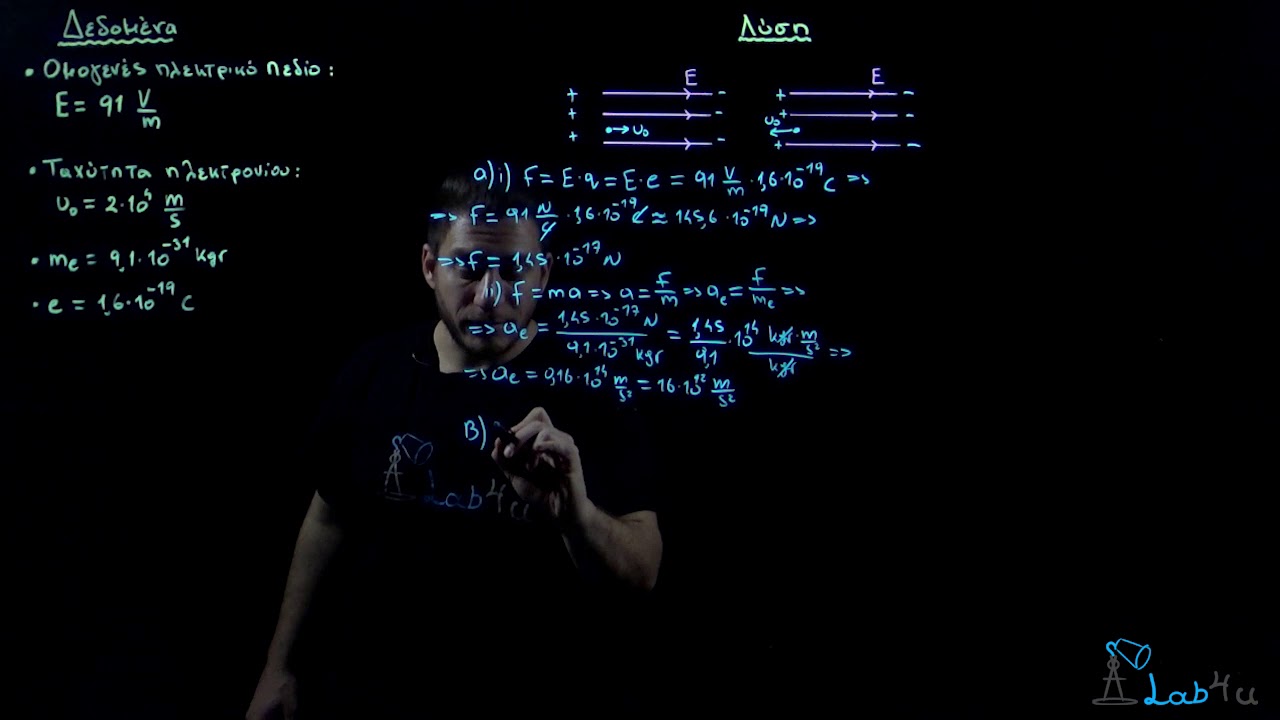 Δεδομένα
• Ομογενές ηλεκτρικό πεδίο:
E = 91 V/m
• Ταχύτητα ηλεκτρονίου:
υ₀ = 2·10⁴ m/s
• mₑ = 9,1·10⁻³¹ kgr
• e = 1,6·10⁻¹⁹ C
Λύση
E
+ -
+ -
+ υ₀ -
E
+ -
+ -
υ₀
+ -
a) i) F = E·q = E·e = 91 V/m · 1,6·10⁻¹⁹ C =>
=> F = 91 N/C · 1,6·10⁻¹⁹ C ≈ 145,6·10⁻¹⁹ N =>
=> F = 1,45·10⁻¹⁷ N
ii) F = ma => a = F/m => aₑ = F/mₑ =>
=> aₑ = 1,45·10⁻¹⁷ N / 9,1·10⁻³¹ kgr = 1,45/9,1 · 10¹⁴ kgr·m/s² / kgr =>
=> aₑ = 0,16·10¹⁴ m/s² = 16·10¹² m/s²
B)
Lab4u
Lab4u